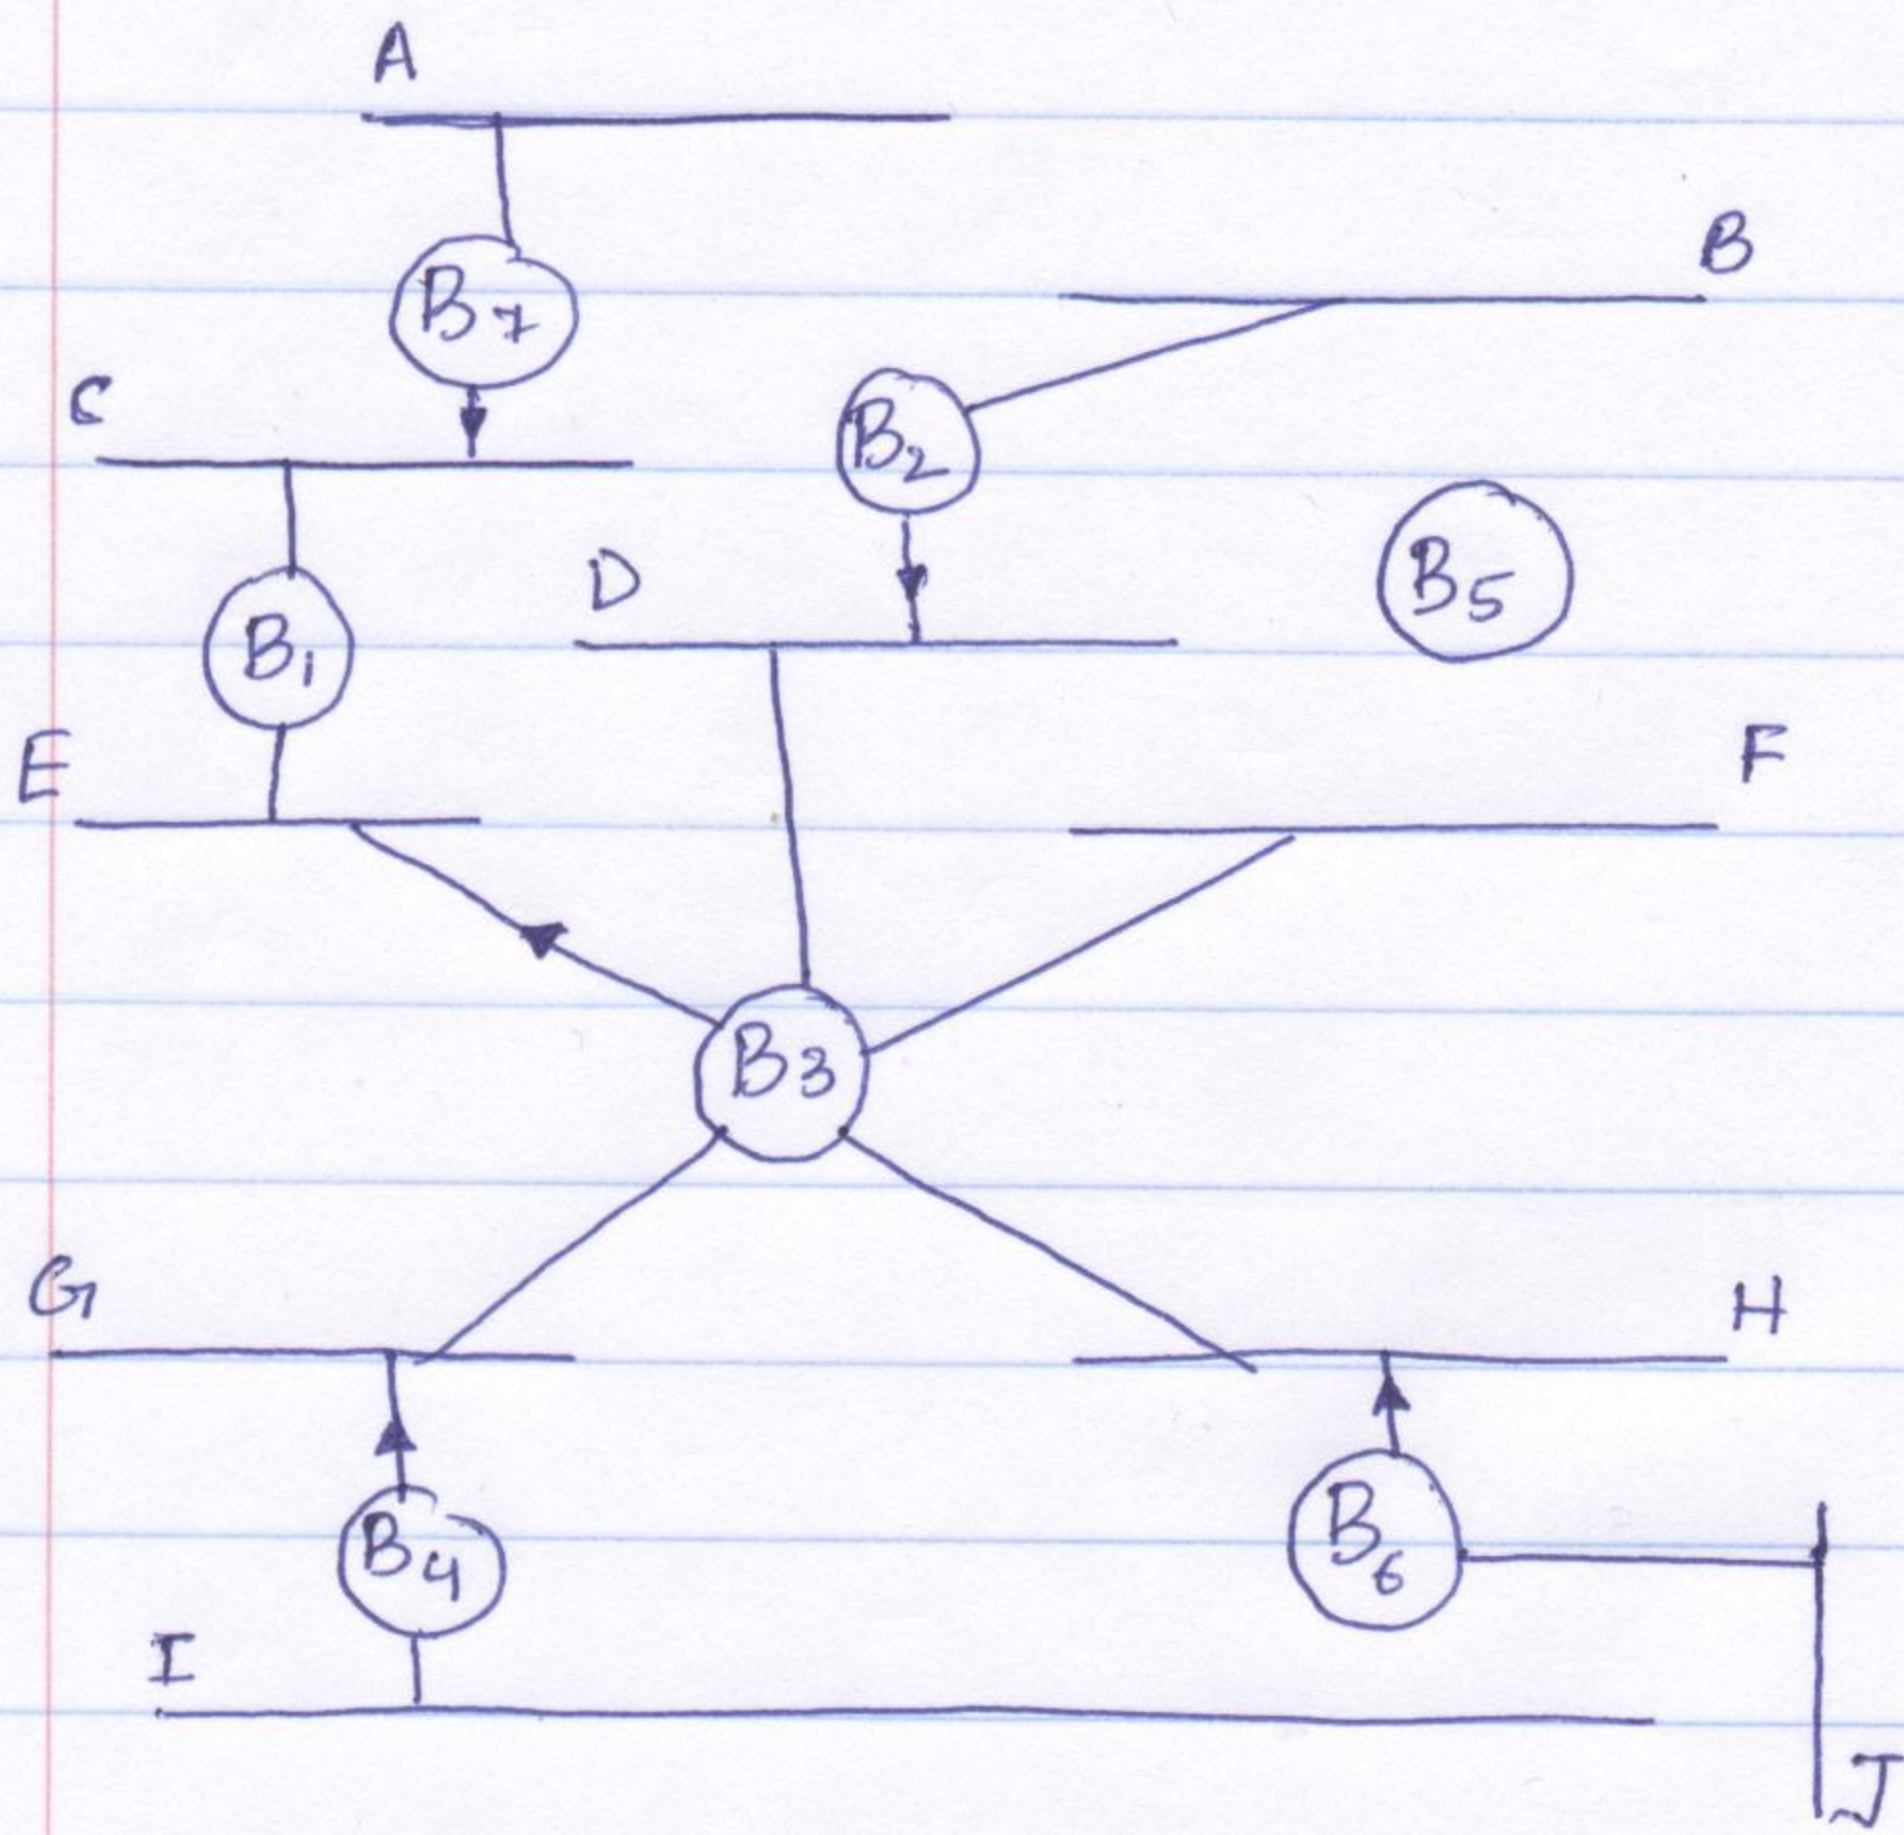 A
B
B7
C
B2
B5
D
B1
E
F
B3
G
H
B4
B6
I
J